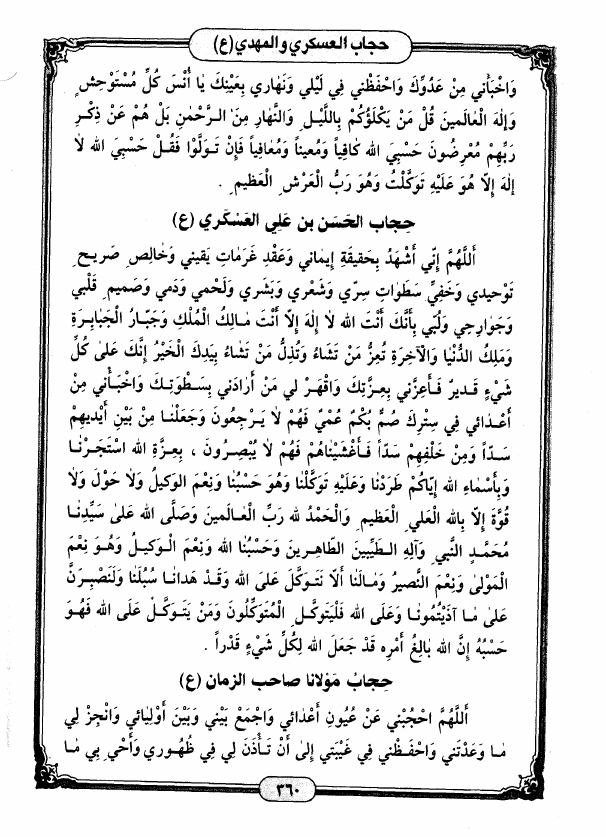 حجاب العسكري والمهدي (ع)
وَاخْبَأْني مِنْ عَدُوِّكَ وَاحْفَظْني فِي لَيْلي وَنَهَاري بِعَيْنِكَ يَا أُنْسَ كُلِّ مُسْتَوْحِشٍ
وَإِلهَ الْعٰالَمينَ قُلْ مَنْ يَكْلَؤُكُمْ بِاللَّيْلِ وَالنَّهَارِ مِنَ الرَّحْمٰنِ بَلْ هُمْ عَنْ ذِكْرِ
رَبِّهِمْ مُعْرِضُونَ حَسْبِيَ الله كَافِياً وَمُعيناً وَمُعَافِياً فَإِنْ تَوَلَّوْا فَقُلْ حَسْبِيَ الله لاٰ
إِلهَ إِلاَّ هُوَ عَلَيْهِ تَوَكَّلْتُ وَهُوَ رَبُّ الْعَرْشِ الْعَظيمِ .
حجاب الحَسَن بن عَلي العَسْكَري (ع)
أَللَّهُمَّ إِنّي أَشْهَدُ بِحَقيقَةِ إيمَاني وَعَقْدِ عَزَمَاتِ يَقيني وَخَالِصِ صَريحِ
تَوْحيدي وَخَفِيِّ سَطَوَاتِ سِرّي وَشَعْري وَبَشَري وَلَحْمي وَدَمي وَصَميمِ قَلْبي
وَجَوَارِحي وَلُبّي بِأَنَّكَ أَنْتَ الله لاٰ إِلهَ إِلاَّ أَنْتَ مَالِكُ الْمُلْكِ وَجَبَّارُ الْجَبَابِرَةِ
وَمَلِكُ الدُّنْيَا وَالآخِرَةِ تُعِزُّ مَنْ تَشَاءُ وَتُذِلُّ مَنْ تَشَاءُ بِيَدِكَ الْخَيْرُ إِنَّكَ عَلىٰ كُلِّ
شَيْءٍ قَديرٌ فَأَعِزَّني بِعِزَّتِكَ وَاقْهَرْ لي مَنْ أَرَادَني بِسَطْوَتِكَ وَاخْبَأْني مِنْ
أَعْدَائي في سِتْرِكَ صُمٌّ بُكْمٌ عُمْيٌ فَهُمْ لاٰ يَرْجِعُونَ وَجَعَلْنَا مِنْ بَيْنِ أَيْديهِمْ
سَدّاً وَمِنْ خَلْفِهِمْ سَدّاً فَأَغْشَيْنَاهُمْ فَهُمْ لاٰ يُبْصِرُونَ ، بِعِزَّةِ الله اسْتَجَرْنَا
وَبِأَسْمَاءِ الله إِيَّاكُمْ طَرَدْنَا وَعَلَيْهِ تَوَكَّلْنَا وَهُوَ حَسْبُنَا وَنِعْمَ الْوَكيلُ وَلاٰ حَوْلَ وَلاٰ
قُوَّةَ إِلاَّ بِالله الْعَلِي الْعَظيمِ وَالْحَمْدُ لله رَبِّ الْعَالَمينَ وَصَلَّى الله عَلىٰ سَيِّدِنَا
مُحَمَّدٍ النَّبي وَآلِهِ الطَّيِّبينَ الطَّاهِرينَ وَحَسْبُنَا الله وَنِعْمَ الْوَكيلُ وَهُوَ نِعْمَ
الْمَوْلىٰ وَنِعْمَ النَّصيرُ وَمَالَنَا أَلاَّ نَتَوَكَّلَ عَلَى الله وَقَدْ هَدَانَا سُبُلَنَا وَلَنَصْبِرَنَّ
عَلىٰ مَا آذَيْتُمُونَا وَعَلَى الله فَلْيَتَوَكَّلِ الْمُتَوَكِّلُونَ وَمَنْ يَتَوَكَّلْ عَلَى الله فَهُوَ
حَسْبُهُ إِنَّ الله بَالِغُ أَمْرِه قَدْ جَعَلَ الله لِكُلِّ شَيْءٍ قَدْراً .
حِجابُ مَوْلانا صاحب الزمان (ع)
أَللَّهُمَّ احْجُبْني عَنْ عُيُونِ أَعْدَائي وَاجْمَعْ بَيْني وَبَيْنَ أَوْلِيَائي وَانْجِزْ لي
مَا وَعَدْتَني وَاحْفَظْني في غَيْبَتي إِلىٰ أَنْ تَأْذَنَ لي في ظُهُوري وَأَحْيِ بي مَا
٣٦٠